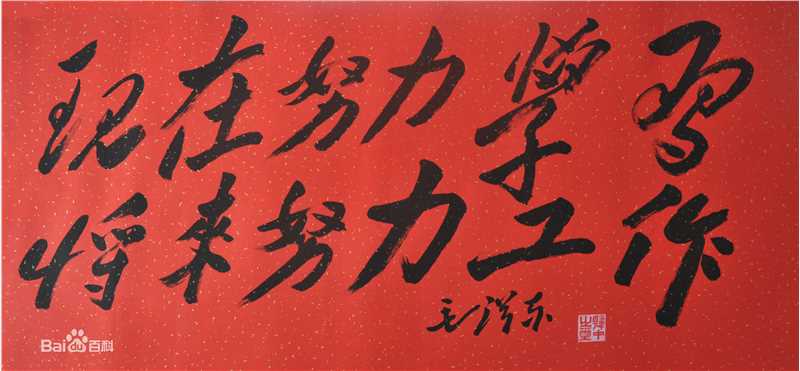 现在努力學習
将来努力工作
毛泽东
Baidu百科